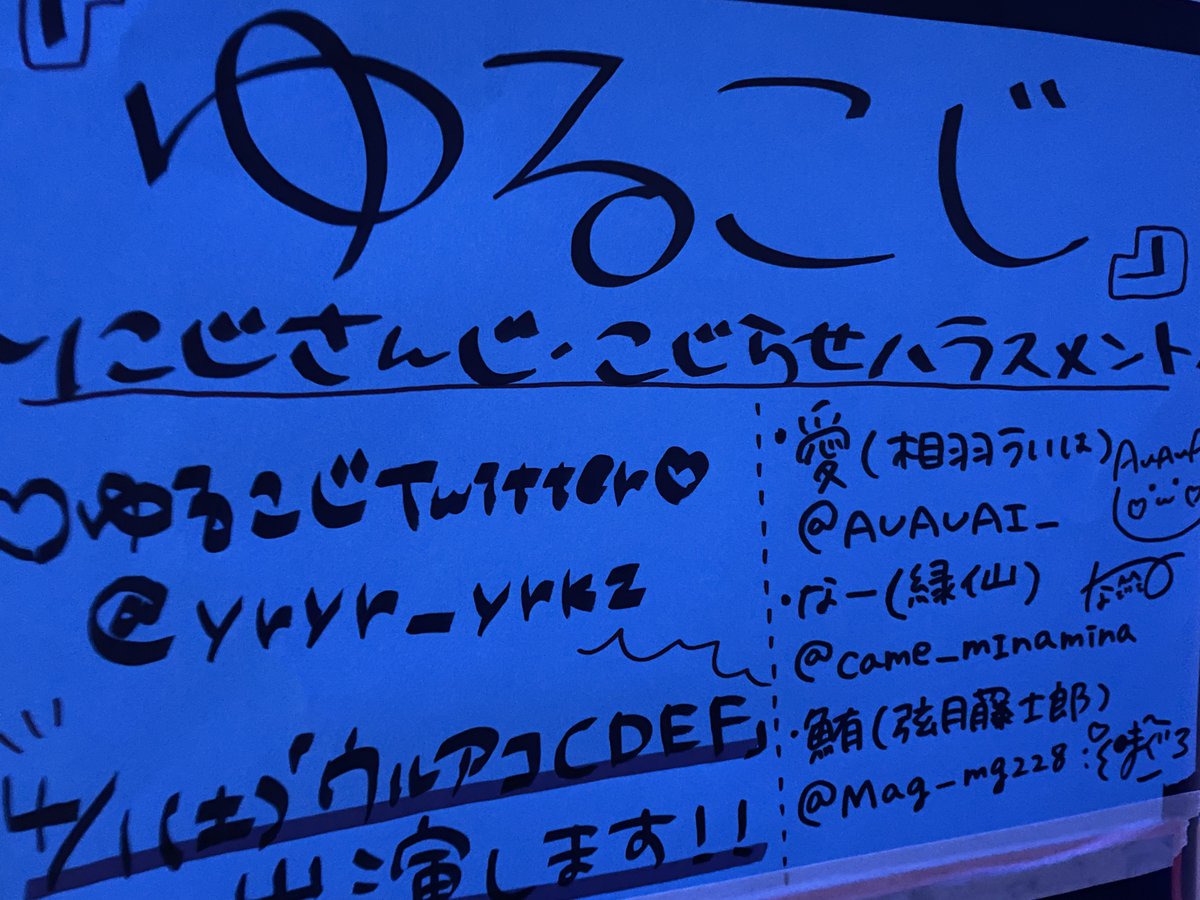 『ゆるこじ』
〜にじさんじ・こじらせハラスメント
♡ゆるこじTwitter♡
@yryr_yrkz
4/1(土)「ウルアコCDEF」
出演します!!
・愛(相羽ういは)
AUAUA
@AUAUAI_
・なー(緑仙)
@came_minamina
・鮪(弦月藤士郎)
@Mag_mg228